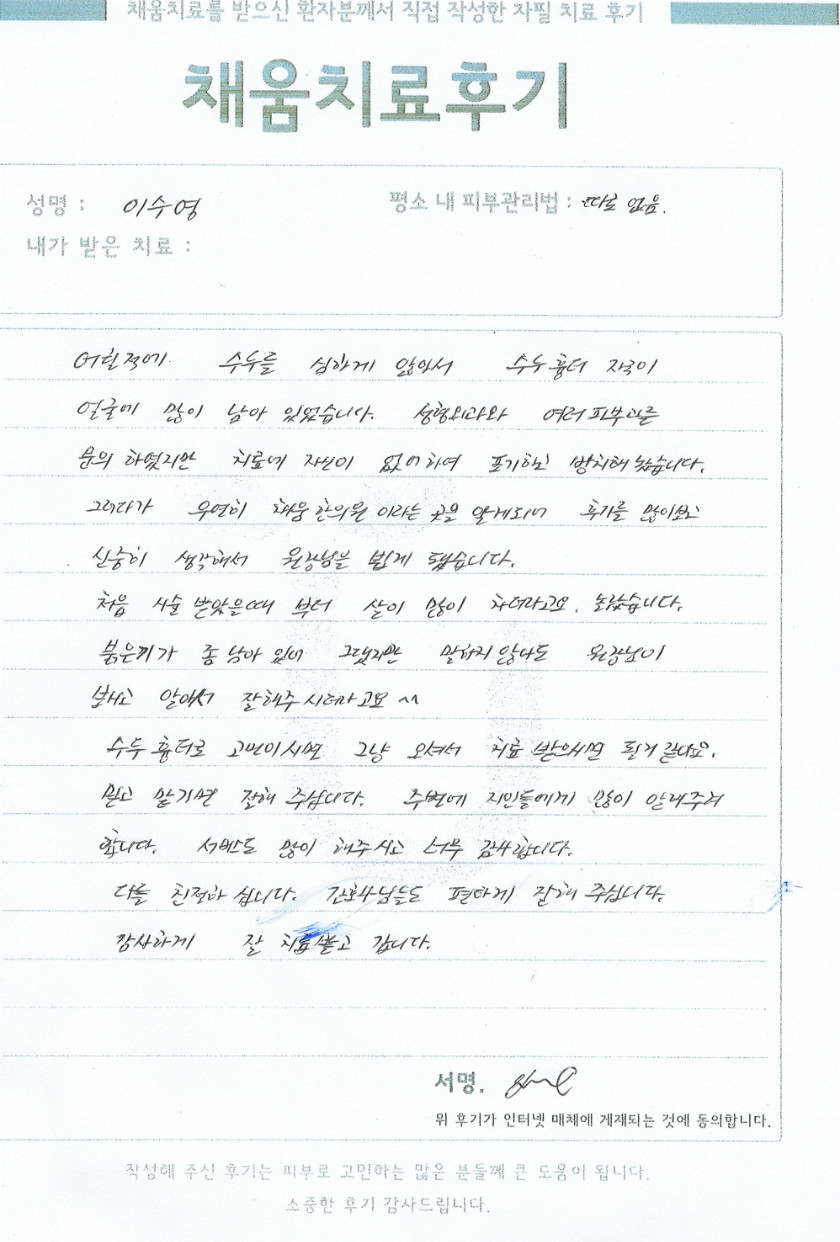 채움치료를 받으신 환자분께서 직접 작성한 자필 치료 후기
채움치료후기
성명 : 이수영
평소 내 피부관리법 : 따로 없음.
내가 받은 치료 :
어릴적에. 수두를 심하게 앓아서 수두 흉터 자국이
얼굴에 많이 남아 있었습니다. 성형외과와 여러 피부과를
문의 하였지만 치료에 자신이 없어하여 포기하고 방치해 놨습니다.
그러다가 우연히 채움 한의원 이라는 곳을 알게되어 후기를 많이보고
신중히 생각해서 원장님을 뵙게 됐습니다.
처음 시술 받았을때 부터 살이 많이 차더라고요. 놀랐습니다.
붉은끼가 좀 남아 있어 그랬지만 말하지 않아도 원장님이
보시고 알아서 잘해주 시더라고요 ^^
수두 흉터로 고민이시면 그냥 오셔서 치료 받으시면 될거 같아요.
믿고 맡기면 잘해 주십니다. 주변에 지인들에게 많이 알려주려
합니다. 서비스도 많이 해주시고 너무 감사합니다.
다들 친절하 십니다. 간호사님들도 편하게 잘해 주십니다.
감사하게 잘 치료받고 갑니다.
서명.
위 후기가 인터넷 매체에 게재되는 것에 동의합니다.
작성해 주신 후기는 피부로 고민하는 많은 분들께 큰 도움이 됩니다.
소중한 후기 감사드립니다.